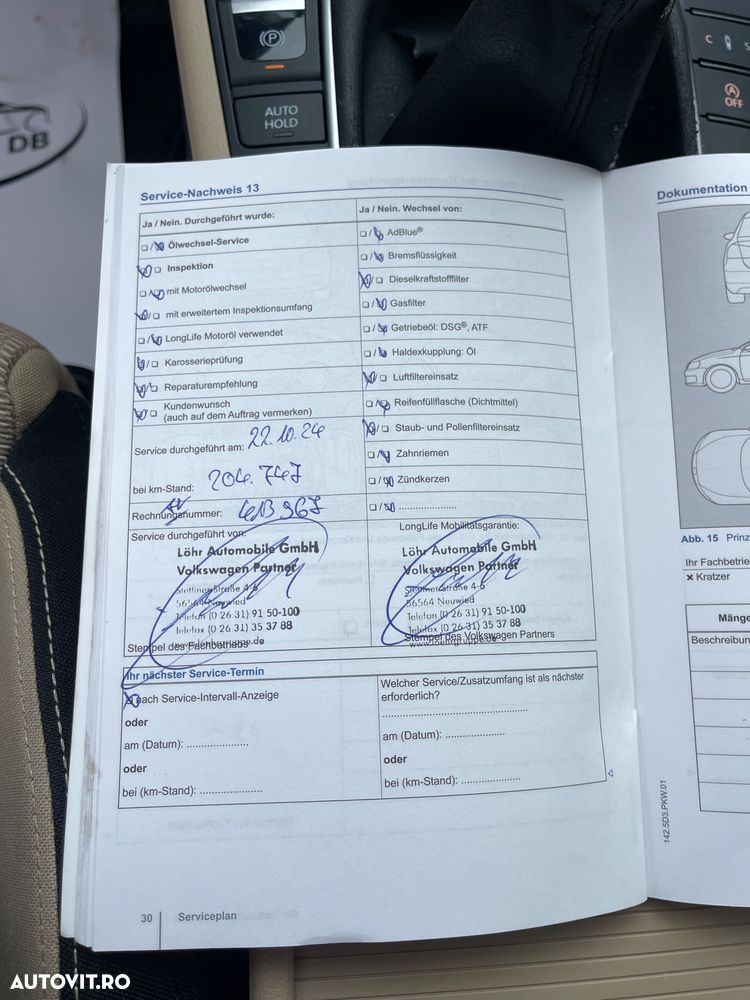 AUTO
HOLD
OFF
DB
Service-Nachweis 13
Ja / Nein. Durchgeführt wurde:
Ölwechsel-Service
Inspektion
mit Motorölwechsel
mit erweitertem Inspektionsumfang
LongLife Motoröl verwendet
Karosserieprüfung
Reparaturempfehlung
Kundenwunsch
(auch auf dem Auftrag vermerken)
Service durchgeführt am: 22.10.24
bei km-Stand: 204.747
Rechnungsnummer:
Service durchgeführt von:
Löhr Automobile GmbH
Volkswagen Partner
Stettiner Straße 4-6
56564 Neuwied
Telefon (0 26 31) 91 50-100
Telefax (0 26 31) 35 37 88
Stempel des Fachbetriebs
Ja / Nein. Wechsel von:
AdBlue®
Bremsflüssigkeit
Dieselkraftstofffilter
Gasfilter
Getriebeöl: DSG®, ATF
Haldexkupplung: Öl
Luftfiltereinsatz
Reifenfüllflasche (Dichtmittel)
Staub- und Pollenfiltereinsatz
Zahnriemen
Zündkerzen
LongLife Mobilitätsgarantie:
Löhr Automobile GmbH
Volkswagen Partner
Stettiner Straße 4-6
56564 Neuwied
Telefon (0 26 31) 91 50-100
Telefax (0 26 31) 35 37 88
Stempel des Volkswagen Partners
Ihr nächster Service-Termin
nach Service-Intervall-Anzeige
oder
am (Datum): .....................
oder
bei (km-Stand): .....................
Welcher Service/Zusatzumfang ist als nächster
erforderlich?
am (Datum): .....................
oder
bei (km-Stand): .....................
30 Serviceplan
Dokumentation
Abb. 15 Prinz
Ihr Fachbetrie
× Kratzer
Mänge
Beschreibun
142.5D3.PKW.01
AUTOVIT.RO